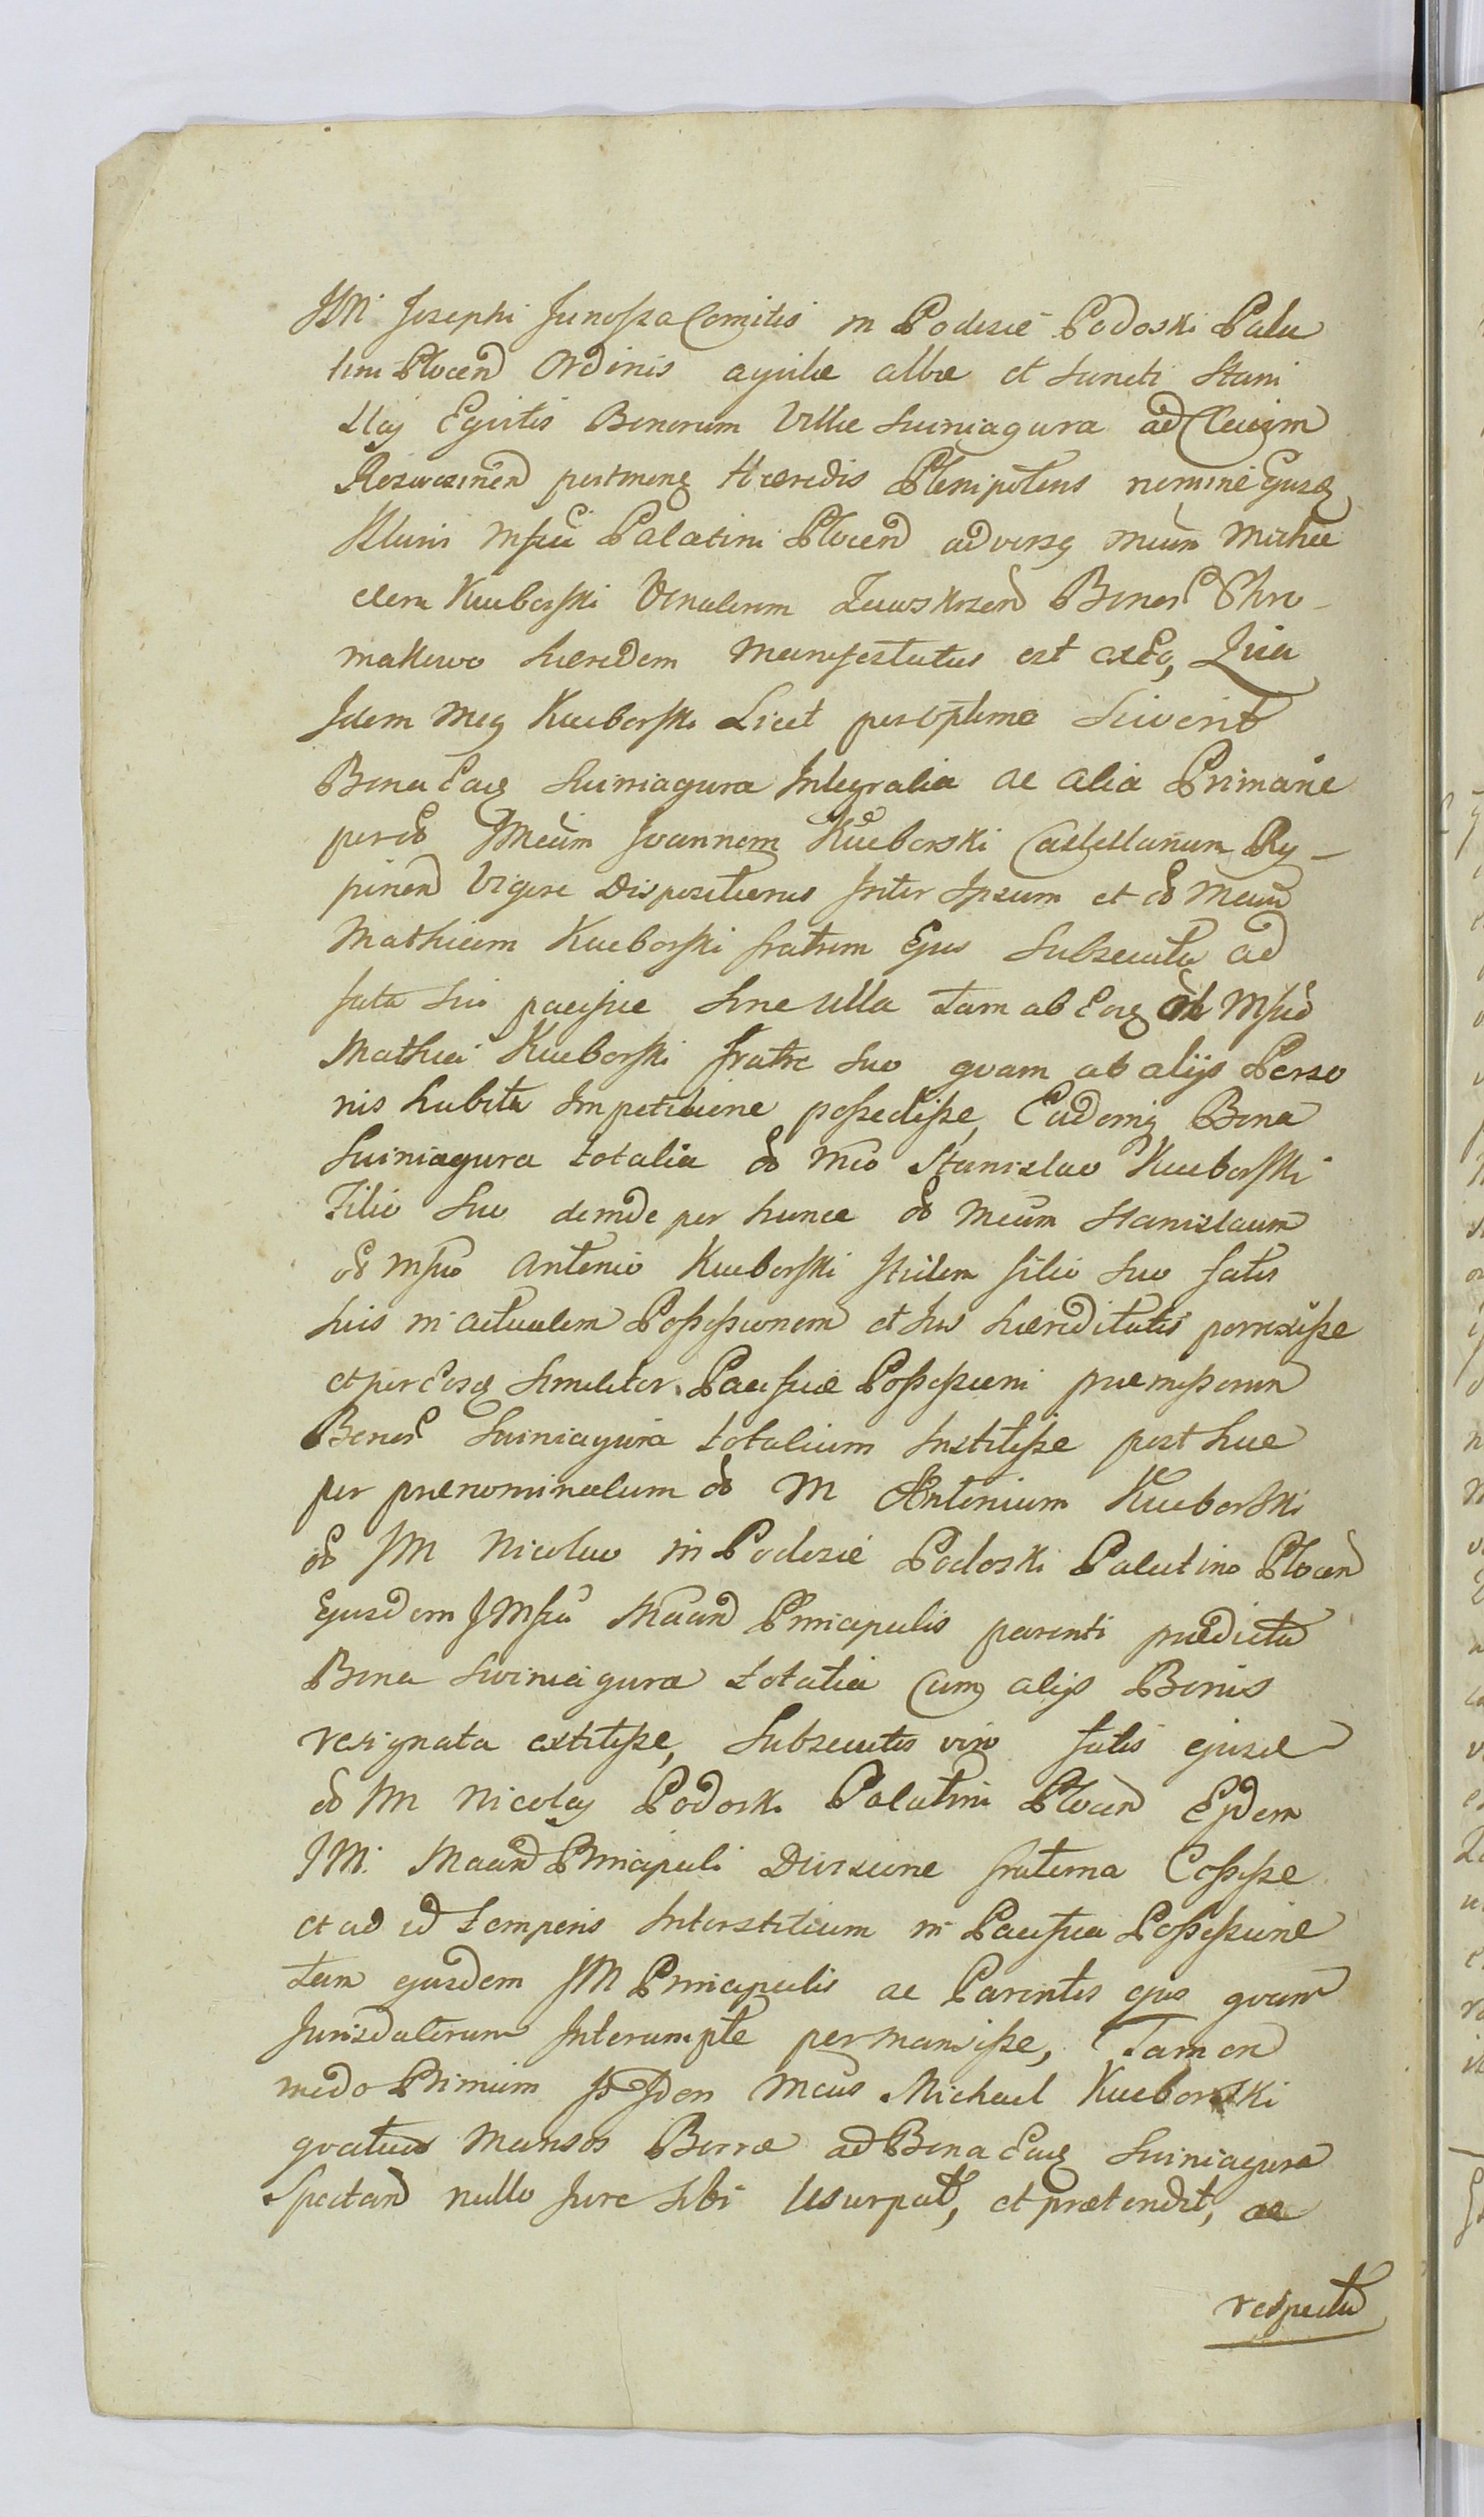 JMi Josephi Junoſza Comitis in Podosie Podoski Pala
tini Plocen Ordinis aquilæ albæ et Sancti Stani
slaj Equitis Bonorum Villæ Suiniagura ad
pertinen Hæredis Plenipotens nomine Ejusq
Palatini Plocen adversq Mcum Micha
elem Kucborſki Venatorem Zawskrzen Bonor
makowo hæredem Manifestatus est Quia
Idem Mcq Kucborſki Licet peroptime Sciverit
Bona Eaq Suiniagura Integralia ac alia Primarie
per Mcum Joannem Kucborski Castellanum Ry-
pinen Vigore Dispositionis Inter Ipsum et olim Mcum
Mathiam Kucborſki fratrem Ejus Subsecuta ad
fata Sua pacifice Sine ulla tam ab Eoq
Mathia Kucborſki fratre Suo quam ab alijs Perso
nis habita Impetitione poſsediſse, Eademq Bona
Suiniagura totalia Mco Stanislao Kucborſki
Filio Suo deinde per hunce Mcum Stanislaum
Antonio Kucborſki Itidem filio Suo fatis
Suis in actualem Poſseſsionem et Jus hæreditatis porrexiſse
et per Eosq Similiter Pacificæ Poſseſsioni præmiſsorum
Bonor Suiniagura totalium Institiſse post hac
per prænominatum M Antonium Kucborſki
JM Nicolao in Podosie Podoski Palatino Plocen
Ejusdem Principalis parenti prædicta
Bona Suiniagura totalia Cum alijs Bonis
resignata extitiſse, Subsecutis vero fatis ejusd
M Nicolaj Podoski Palatini Plocen Ejdem
JM Principali Divisione fraterna Ceſsiſse
et ad id temporis Interstitium in Pacifica Poſseſsione
tam ejusdem JM Principalis ac Parentis ejus quam
Jurisdatorum Interrumpte permansiſse, Tamen
modo Primum Idem Mcus Michael Kucborski
quatuor Mansos Borræ ad Bona Eaq Suiniagura
Spectan nullo Jure Sibi Usurpat, et prætendit, ac
respectu